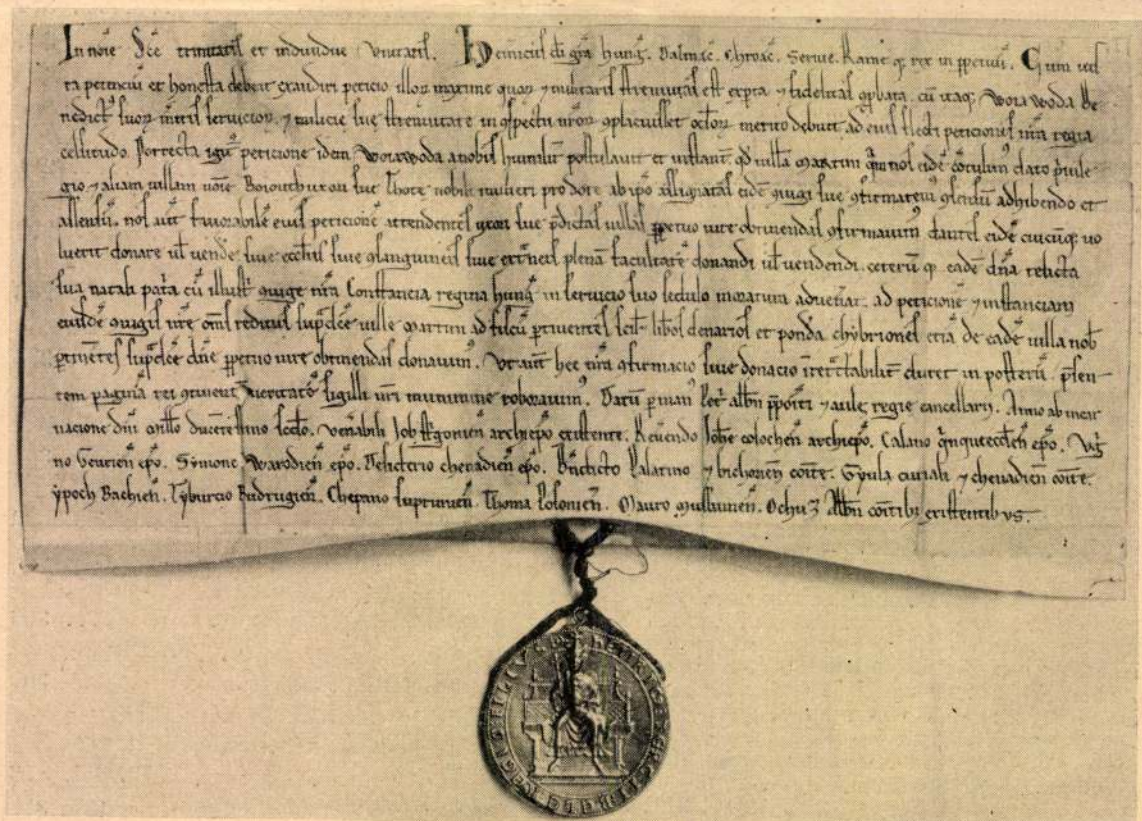 In noīe Sc̄e trinitatis et individue Unitatis. Heinricus di gr̄a hung̃. Dalmac̃. Chroac̃. Servie. Rame q̨ rex in ꝑpetuū. Cum ius
ta petencīū et honesta debeat exaudiri peticio illoꝝ maxime quoꝝ ⁊ militaris strenuitas est exꝑta ⁊ fidelitas ꝓbata. cū itaq; Woiawoda Be
nedict᾽ suoꝝ m̄itis servicioꝝ. ⁊ milicie sue strenuitate in ꝯspectu nr̄oꝝ ꝯplacuisset octoꝝ merito debuit ad eius flecti peticiones nr̄a regia
celsitudo. Porrecta igit᾽ peticione idem Woiawoda a nobis humilit̃ postulavit et instant̃. qd̄ villā Martini quā nos eidē ꝯtulim᾽ dato privile
gio. ⁊ aliam villam noīe Boroithvnou sue Thote nobili mulieri pro dote ab ip̄o assignatas eidē ꝯiugi sue ꝯfirmarem᾽ ꝯsensū adhibendo et
assensū. nos aūt favorabilē eius peticionē attendentes uxori sue p̄dictas villas ꝑpetuo iure obtinendas ꝯfirmavim᾽ dantes eidē cuicūq; vo
luerit donare ul̄ vendẽ sive eccl̄iis sive ꝯsanguineis sive extñeis plenā facultatē donandi ul̄ vendendi. ceterū q̨ eadē dn̄a relicta
sua natali pat̃a cū illust̃ ꝯiuge nr̄a Constancia regina hung̃ in servicio suo sedulo moratura advenat̃. ad peticionē ⁊ instanciam
eiusdē ꝯiugis nr̄e om̄s reditus sup̄dc̄e ville Martini ad fiscū ꝑtinentes scil̃. lib̄os denarios et pond̃a. chybriones etiā de eadē villa nob̄
ꝑtinētes sup̄dc̄e dn̄e ꝑpetuo iure obtinendas donavim᾽. Ut aūt hec nr̄a ꝯfirmacio sive donacio irret̃ctabilit̃ duret in posterū. p̄sen
tem paginā rei ꝯtinent̃ veritatē sigilli nr̄i munimine roboravim᾽. Datū ꝑ man᾽ Pet̃ alb̄n p̄positi ⁊ aule regie cancellarii. Anno ab incar
nacione dn̄i millo ducentesimo sc̄do. Ven̄abili Job str̃gonien̄ archiep̄o existente. Rev̄endo Joh̄e colocen̄ archiep̄o. Calano quinqueeccl̄en ep̄o.
no Geurien̄ ep̄o. Symone Warodien̄ ep̄o. Desiderio chenadien̄ ep̄o. Bn̄dicto Palatino ⁊ bichorien̄ com̄te. Gyula curiali ⁊ chenadien̄ com̄te.
ypoch Bachien̄. Tyburcio Budrugien̄. Chepano supruniēn. Thoma Posonien̄. Mauro Mussunien̄. Ochuz Alb̄n com̄tib᾽ existentibus.